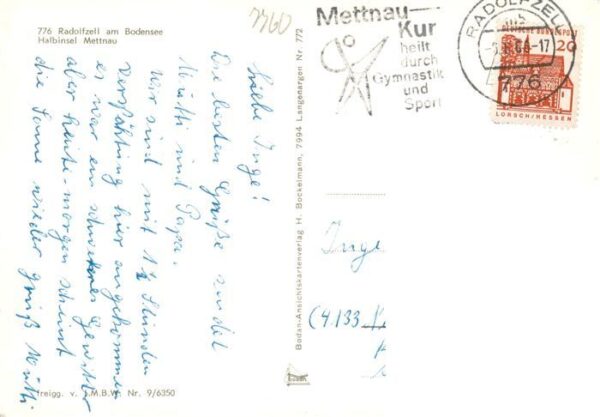 776 Radolfzell am Bodensee
Halbinsel Mettnau
7760
Mettnau-
Kur
heilt
durch
Gymnastik
und
Sport
RADOLFZELL
776
DEUTSCHE BUNDESPOST
20
LORSCH/HESSEN
Liebe Inge!
Die besten Grüße sendet
Mutti und Papa.
Wir sind mit 1½ Stunden
Verspätung hier angekommen
es war ein schweres Gewitter
aber heute morgen scheint
die Sonne wieder gruß Mutti
Bodan-Ansichtskartenverlag H. Bockelmann, 7994 Langenargen Nr. 772
Inge
(4133
Freigg. v. I.M.B.W. Nr. 9/6350